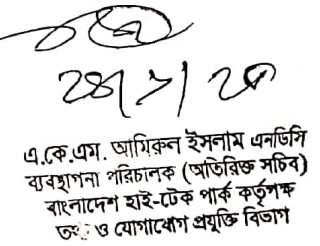 এ.কে.এম. আমিরুল ইসলাম এনডিসি
ব্যবস্থাপনা পরিচালক (অতিরিক্ত সচিব)
বাংলাদেশ হাই-টেক পার্ক কর্তৃপক্ষ
ও যোগাযোগ প্রযুক্তি বিভাগ